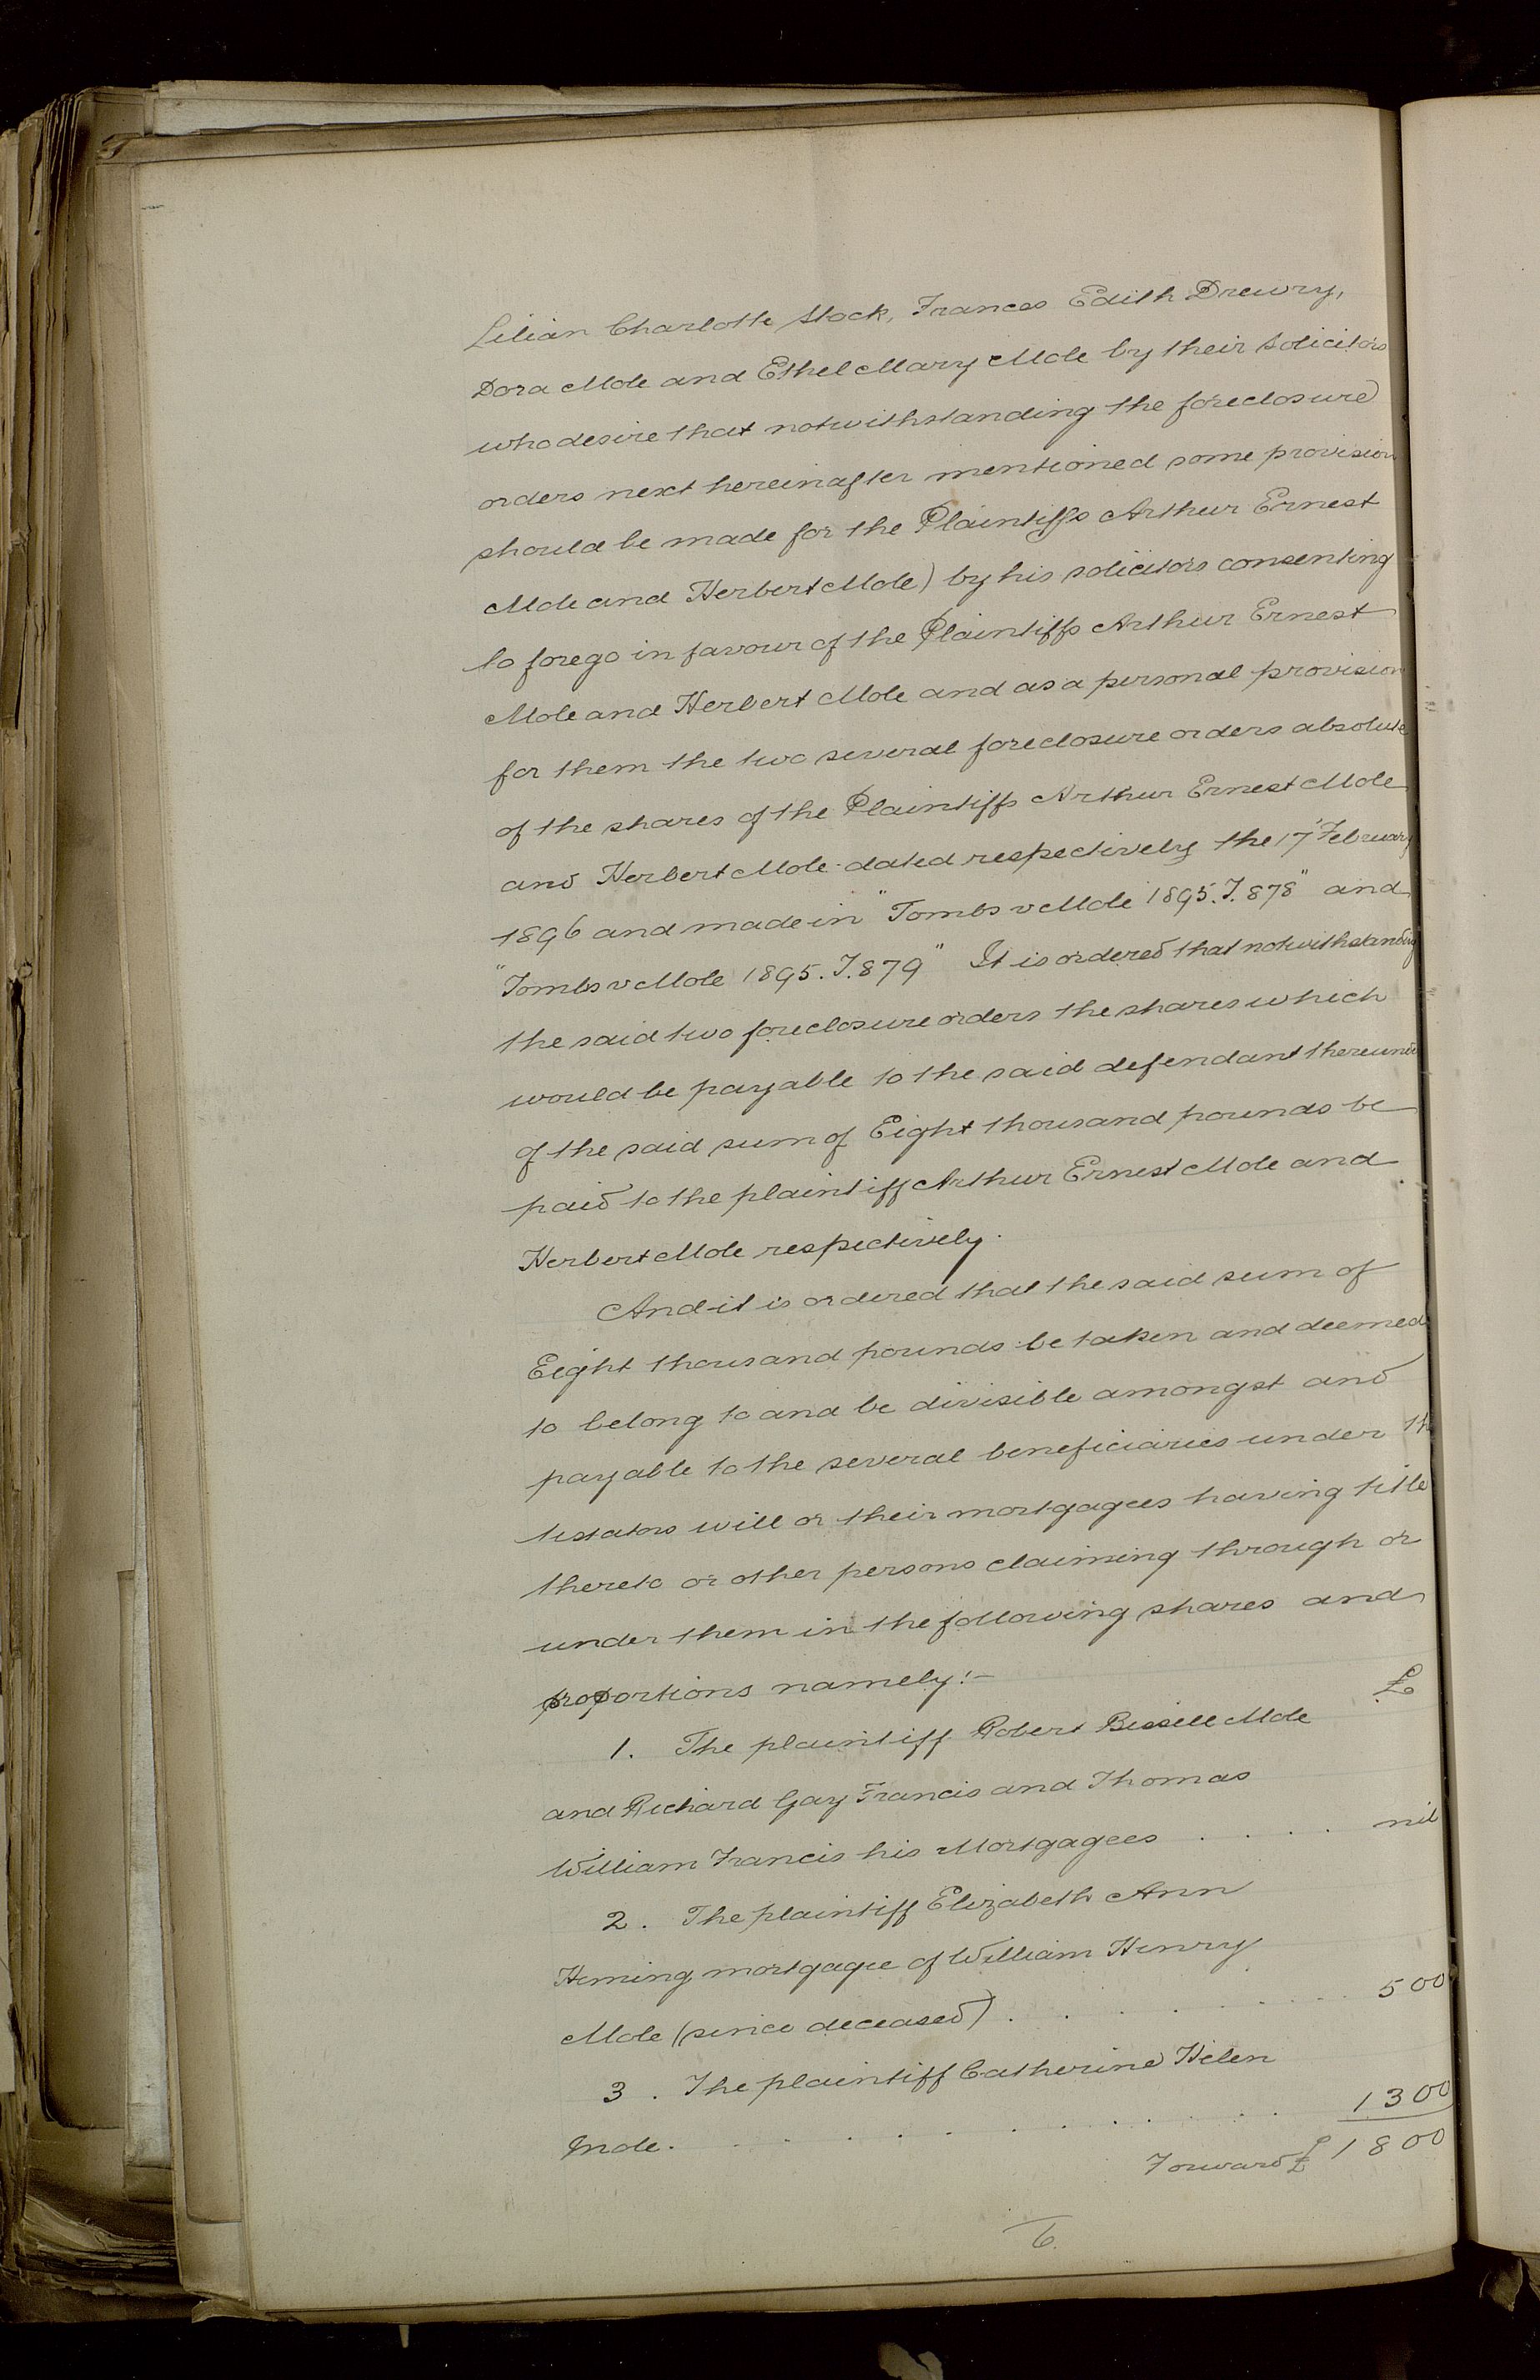 Lilian Charlotte Stock, Frances Edith Drewry,
Dora Mole and Ethel Mary Mole by their Solicitors
who desire that notwithstanding the foreclosure
orders next hereinafter mentioned some provision
should be made for the Plaintiffs Arthur Ernest
Mole and Herbert Mole) by his solicitors consenting
to forego in favour of the Plaintiffs Arthur Ernest
Mole and Herbert Mole and as a personal provision
for them the two several foreclosure orders absolute
of the shares of the Plaintiffs Arthur Ernest Mole
and Herbert Mole dated respectively the 17 February
1896 and made in "Tombs v Mole 1895. T. 878" and
"Tombs v Mole 1895. T. 879" It is ordered that notwithstanding
the said two foreclosure orders the shares which
would be payable to the said defendant thereunder
of the said sum of Eight thousand pounds be
paid to the plaintiff Arthur Ernest Mole and
Herbert Mole respectively.
And it is ordered that the said sum of
Eight thousand pounds be taken and deemed
to belong to and be divisible amongst and
payable to the several beneficiaries under th
testators will or their mortgagees having title
thereto or other persons claiming through or
under them in the following shares and
proportions namely:- £
1. The plaintiff Robert Bissell Mole
and Richard Gay Francis and Thomas
William Francis his Mortgagees . . . . nil
2. The plaintiff Elizabeth Ann
Heming mortgagee of William Henry
Mole (since deceased) . . . . . . . 500
3. The plaintiff Catherine Helen
Mole. . . . . . . . . . 1300
Forward £ 1800
6.